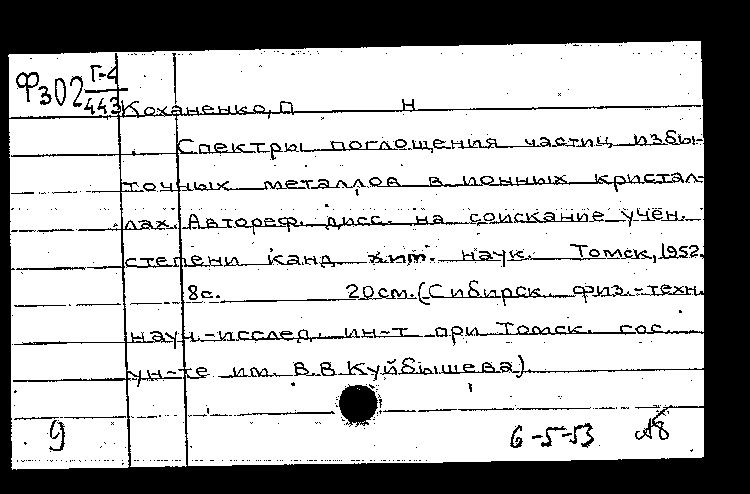 Ф302 Г-4
443
Коханенко, П Н
Спектры поглощения частиц избы-
точных металлов в ионных кристал-
лах. Автореф. дисс. на соискание учен.
степени канд. хим. наук. Томск, 1952.
8с. 20см. (Сибирск. физ.-техн.
науч.-исслед. ин-т при Томск. гос.
ун-те им. В.В. Куйбышева).
9 6-5-53